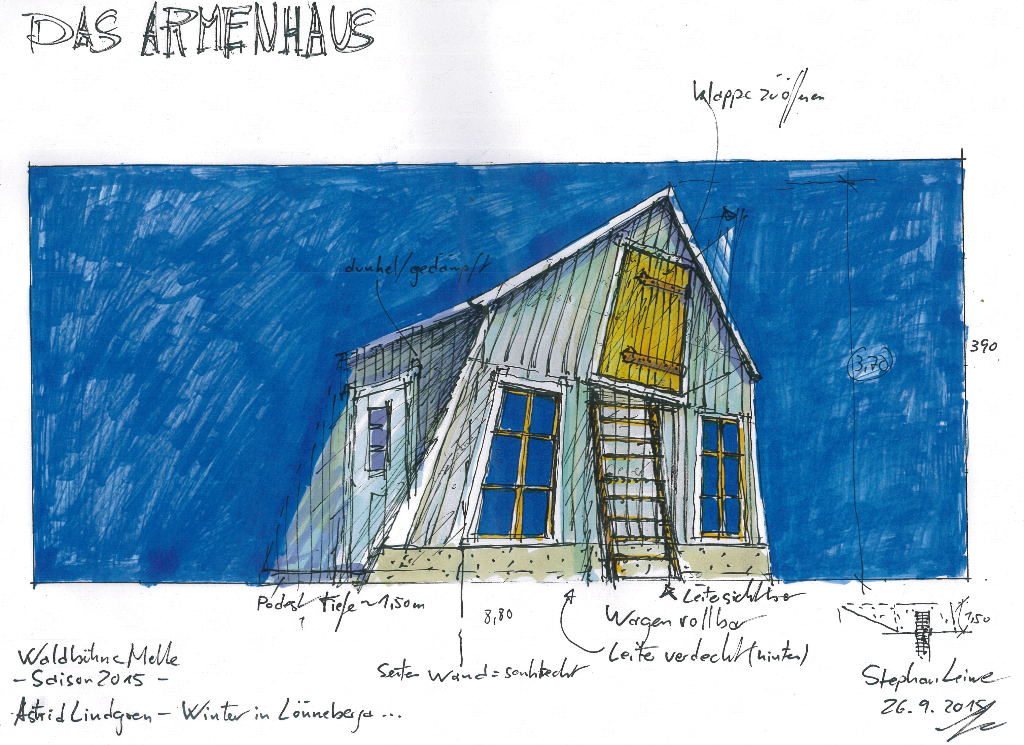 DAS ARMENHAUS
Klappe zu öffnen
dunkel/gedämpft
390
3,70
Podest Tiefe ~ 1,50m
?
8,80
Leiter sichtbar
Wagen rollbar
Leiter verdeckt (hinten)
1,50
Seiten Wand = senkrecht
Waldbühne Melle
- Saison 2015 -
Astrid Lindgren - Winter in Lönneberga ...
Stephan Leiwe
26.9.2015